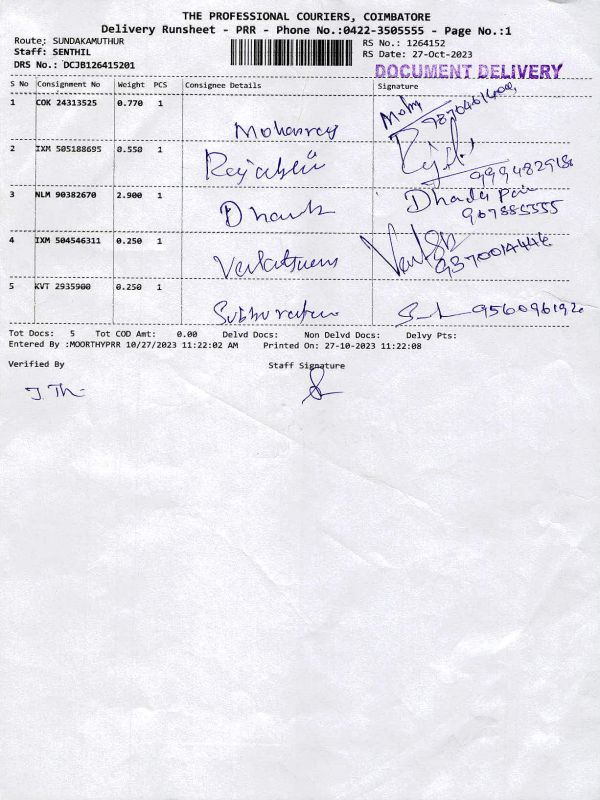 THE PROFESSIONAL COURIERS, COIMBATORE
Delivery Runsheet - PRR - Phone No.:0422-3505555 - Page No.:1
Route: SUNDAKAMUTHUR
RS No.: 1264152
Staff: SENTHIL
RS Date: 27-Oct-2023
DRS No.: DCJB126415201
DOCUMENT DELIVERY
S No Consignment No Weight PCS Consignee Details Signature
1 COK 24313525 0.770 1
Mohanraj
2 IXM 505188695 0.550 1
3 NLM 90382670 2.900 1
967885555
4 IXM 504546311 0.250 1
9370014446
5 KVT 2935900 0.250 1
Tot Docs: 5 Tot COD Amt: 0.00 Delvd Docs: Non Delvd Docs: Delvy Pts:
Entered By :MOORTHYPRR 10/27/2023 11:22:02 AM Printed On: 27-10-2023 11:22:08
Verified By Staff Signature